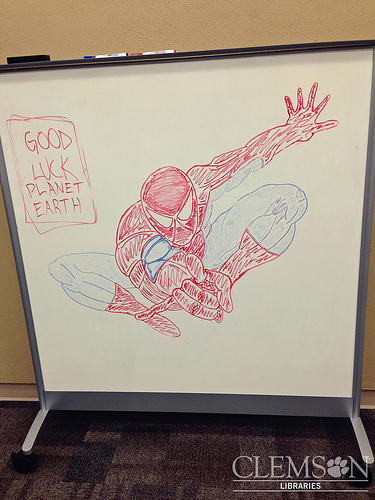 GOOD
LUCK
PLANET
EARTH
CLEMSON
LIBRARIES